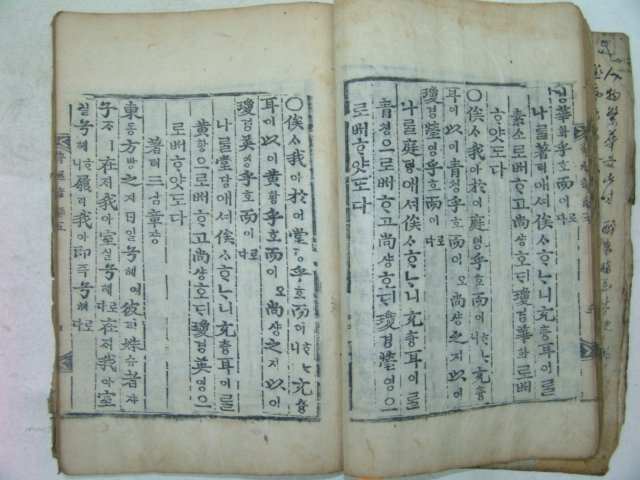 경華화乎호而이로다
나를著뎌애셔俟ᄉᆞᄒᆞᄂᆞ니充츙耳이를
素소로ᄡᅥᄒᆞ고尙샹호ᄃᆡ瓊경華화로ᄡᅥ
ᄒᆞ얏도다
○俟ᄉᆞ我아於어庭뎡乎호而이ᄒᆞᄂᆞ니充츙
耳이以이靑쳥乎호而이오尙샹之지以이
瓊경瑩영乎호而이로다
나를庭뎡애셔俟ᄉᆞᄒᆞᄂᆞ니充츙耳이를
靑쳥으로ᄡᅥᄒᆞ고尙샹호ᄃᆡ瓊경瑩영으
로ᄡᅥᄒᆞ얏도다
○俟ᄉᆞ我아於어堂당乎호而이ᄒᆞᄂᆞ니充츙
耳이以이黃황乎호而이오尙샹之지以이
瓊경英영乎호而이로다
나를堂당애셔俟ᄉᆞᄒᆞᄂᆞ니充츙耳이를
黃황으로ᄡᅥᄒᆞ고尙샹호ᄃᆡ瓊경英영으
로ᄡᅥᄒᆞ얏도다
著뎌三삼章쟝
東동方방之지日일兮혜여彼피姝슈者쟈
子ᄌᆞㅣ在ᄌᆡ我아室실兮혜로다在ᄌᆡ我아室
실兮혜ᄒᆞ니履리我아卽즉兮혜로다
人物繁華